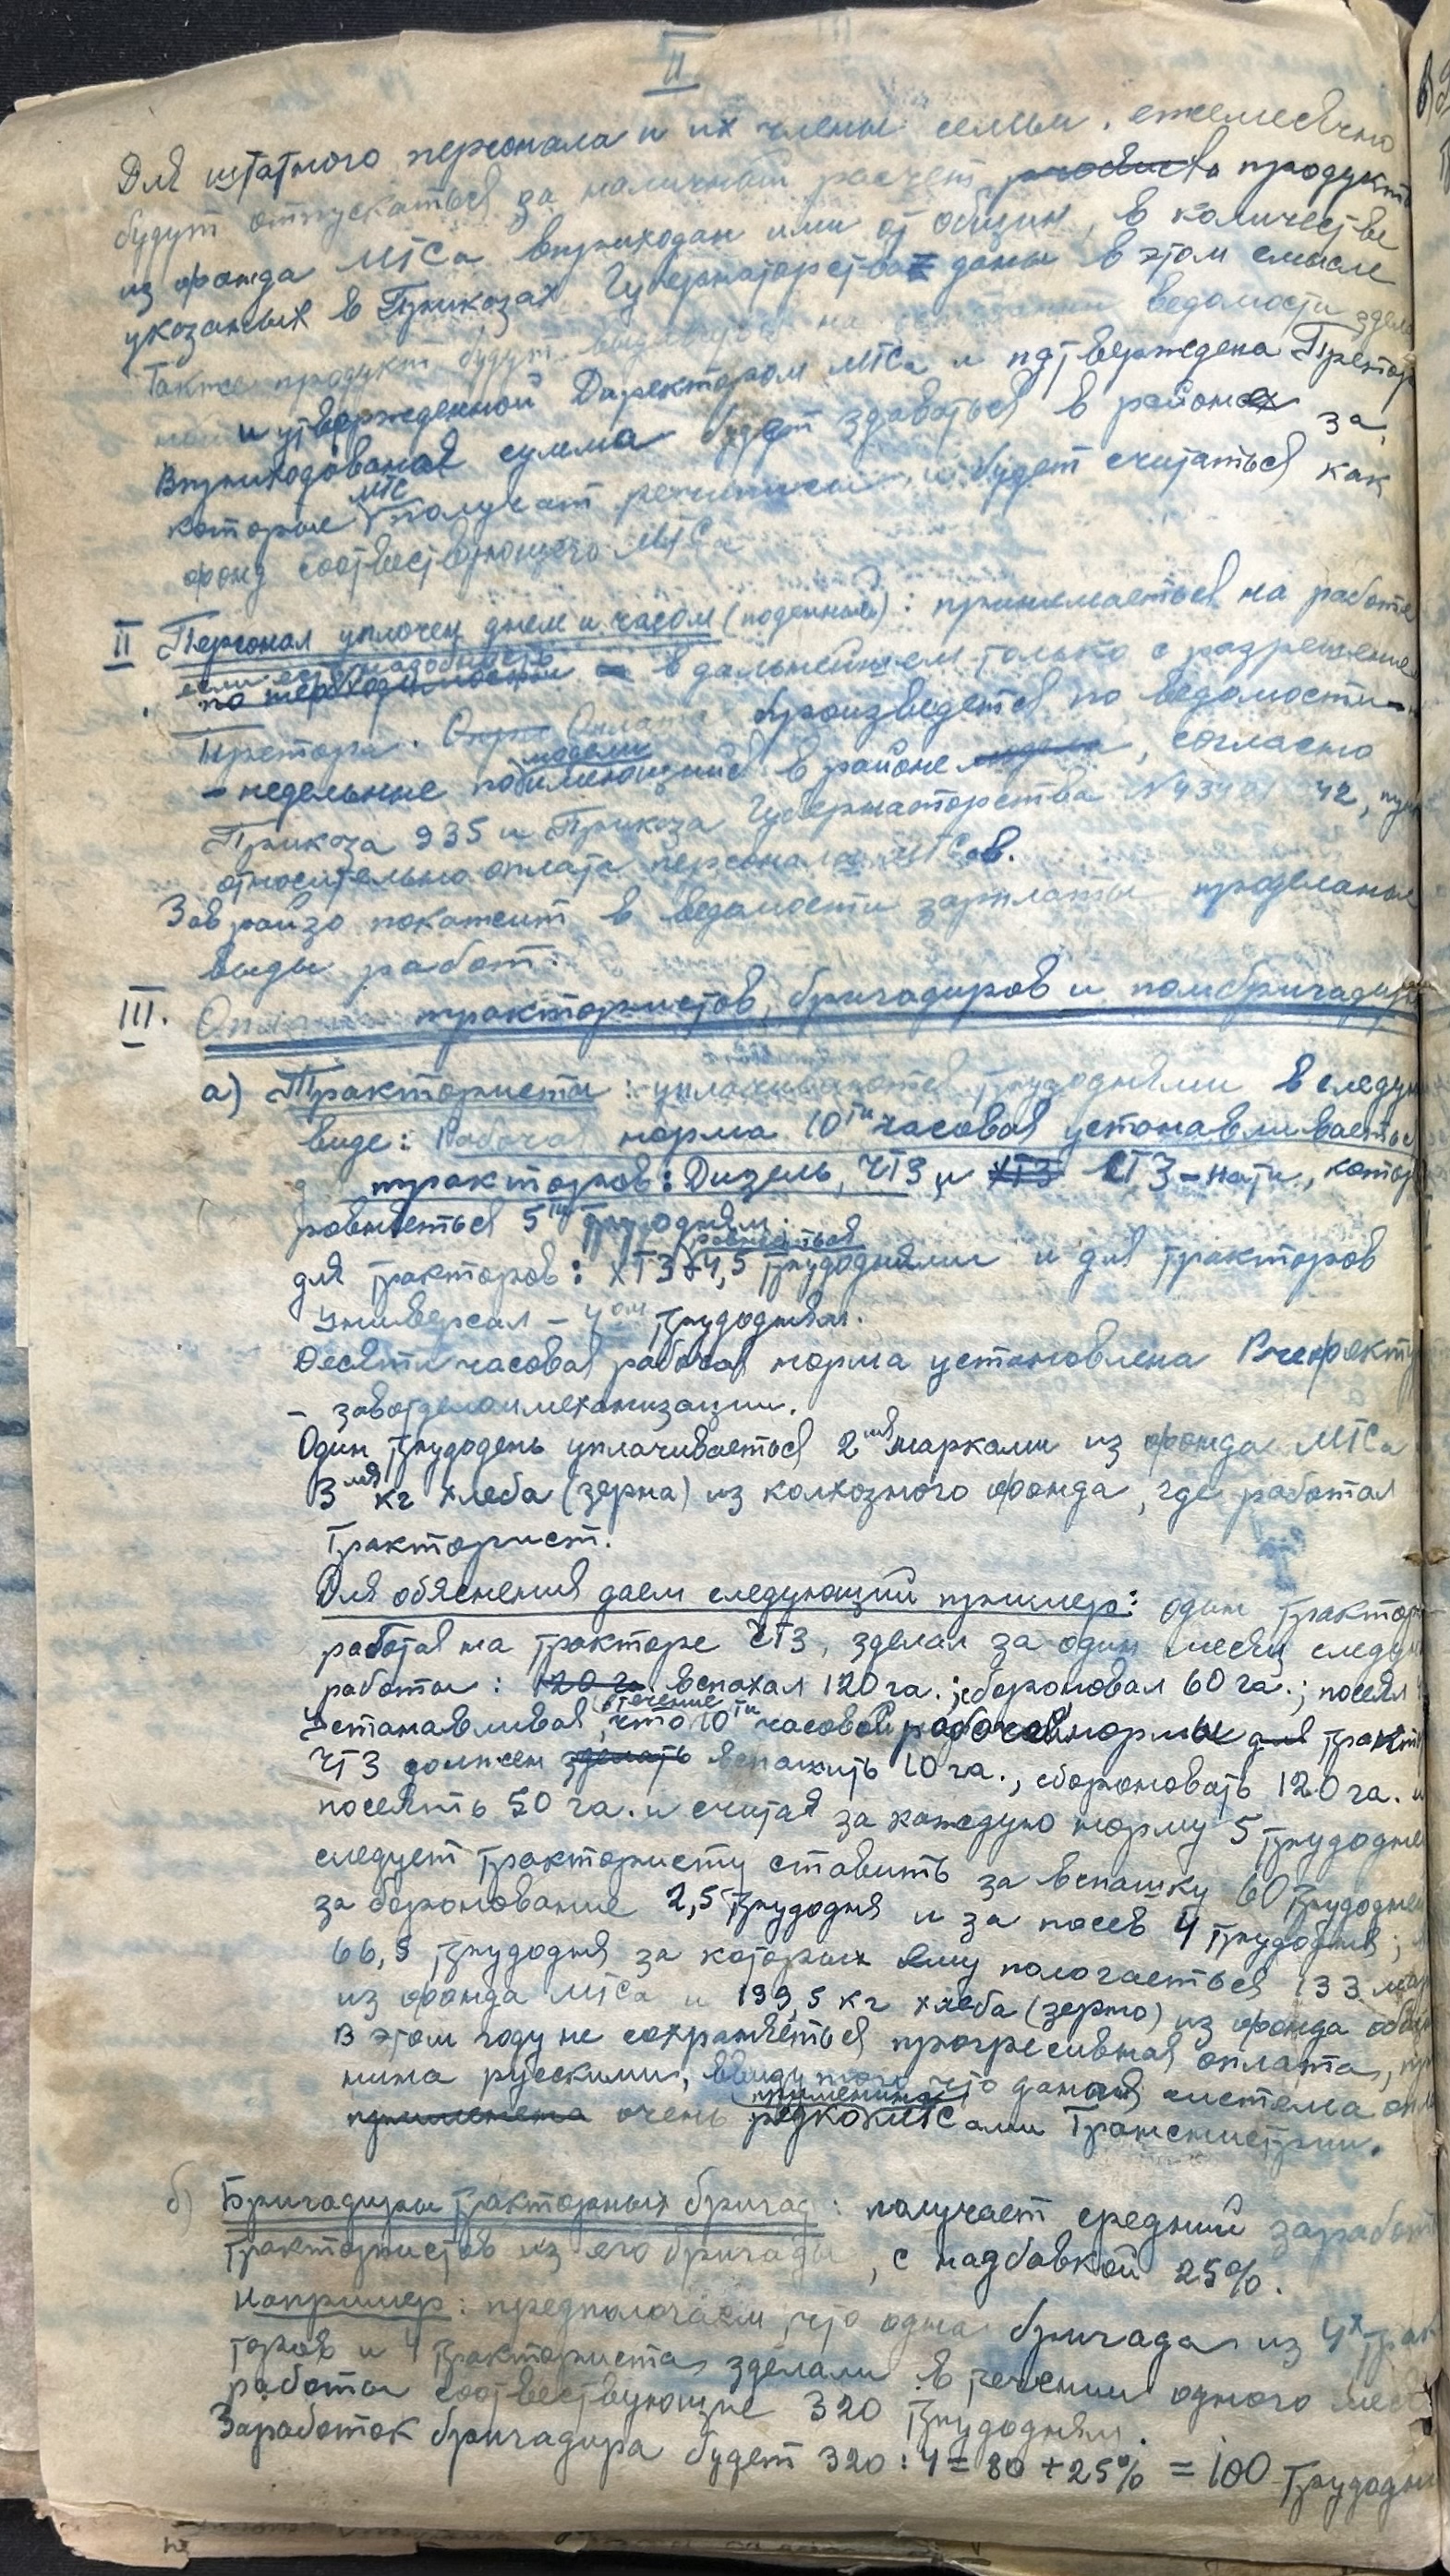 II
Для штатного персонала и их члены семьи, ежемесячно
будут отпускаться за наличный расчет продукт
из фонда МТСа вприходан или от общин, в количестве
указаных в Приказах Губернаторства даны в этом смысле
Также продукт будут на ведомости
и утвержденной Директором МТСа и подтверждена Претор
Вприходованая сумма будет здаваться в районах за,
которые МТС получат и будет считаться как
фонд соотвествующего МТСа
II Персонал уплочен днем и часом (поденный): принимаеться на работе
если есть надобность по в дальнейшем только с разрешение
Претора. Оплата произведется по ведомости-
- недельные модели поименющийся в районе, согласно
Приказа 935 и Приказа Губернаторства 42,
относительно оплата персонала МТСов.
Зав райзо покажит в ведомости зарплаты проделаные
виды работ.
III. Оплата трактористов, бригадиров и помбригадир
а) Трактористы: уплачиваются трудоднями в следу
виде: Рабочая норма 10ти часовая устонавливаеться
тракторов: Дизель, ЧТЗ и ХТЗ СТЗ-Нати, котор
ровняеться 5ти трудодням.
для тракторов: ХТЗ ровняеться 4,5 трудоднями и для тракторов
Универсал - 4ом трудодням.
Десяти часовая рабочая норма установлена
- заводделоммеханизации.
Один трудодень уплачиваеться 2мя марками из фонда МТСа
3мя кг хлеба (зерна) из колхозного фонда, где работал
Тракторист.
Для обяснения даем следующий пример: один трактор
работая на тракторе ЧТЗ, зделал за один месяц следу
работы: 120 га. вспахал 120 га.; сбороновал 60 га.; посеял
Устанавливая, что в течение 10ти часовой рабочей нормы для тракт
ЧТЗ должен зделать вспахить 10 га., сбороновать 120 га. и
посеять 50 га. и считая за каждую норму 5 трудодне
следует трактористу ставить за вспашку 60 трудодне
за боронование 2,5 трудодня и за посев 4 трудодня;
66,5 трудодня за которых ему пологаеться 133 мар
из фонда МТСа и 199,5 кг хлеба (зерно) из фонда общ
В этом году не сохраняеться прогресивная оплата, пр
нима рускими, ввиду того что даная система опл
применена очень редко применима МТСами Транснистрии.
б) Бригадиры тракторных бригад: получает средний заработ
трактористов из его бригады, с надбавкой 25%.
Например: предпологаем, что одна бригада из 4х трак
торов и 4 тракториста зделали в течении одного мес
работы соотвествующие 320 трудодням.
Заработок бригадира будет 320 : 4 = 80 + 25% = 100 трудодни